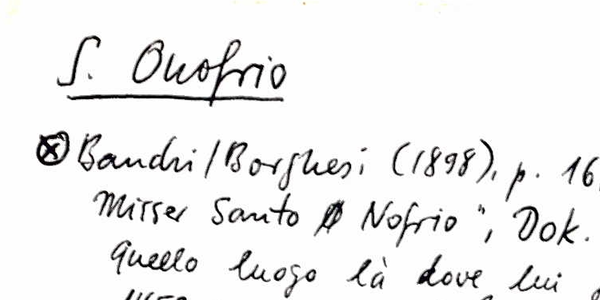 S. Onofrio
Bandri/Borghesi (1898), p. 16
Misser Santo Nofrio", Dok.
Quello luogo là dove lui